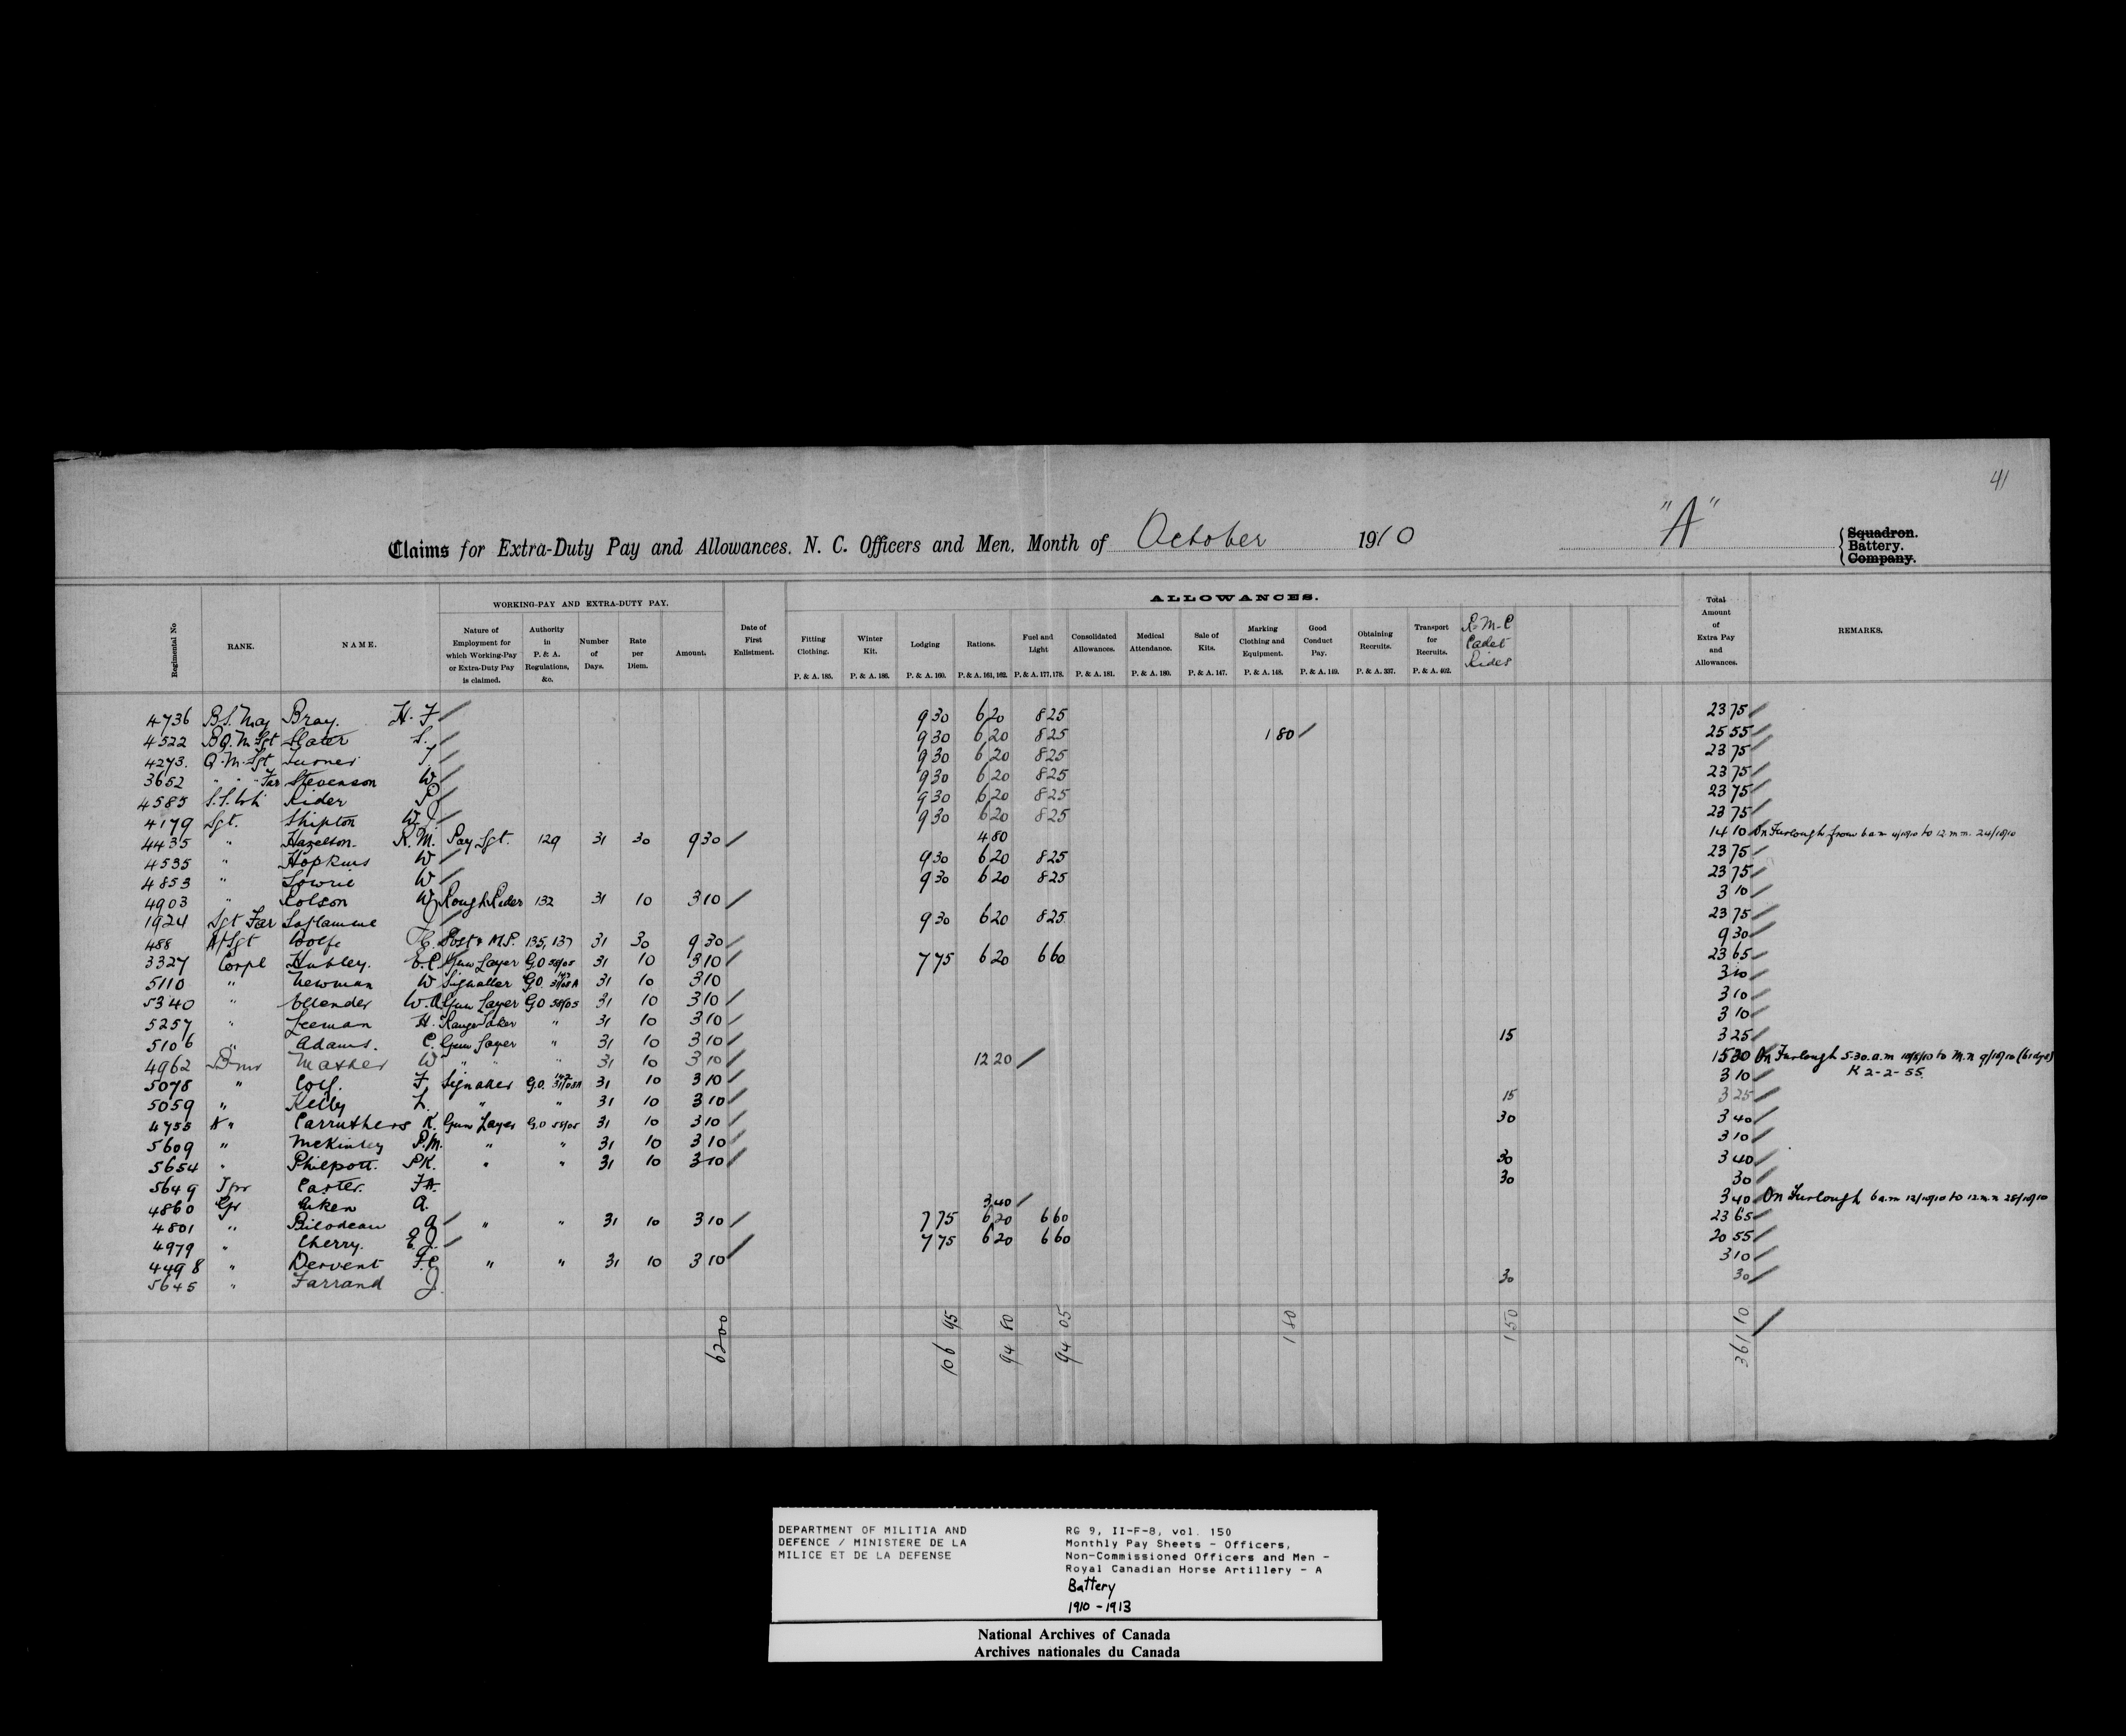 41
Claims for Extra-Duty Pay and Allowances. N. C. Officers and Men, Month of October 1910 "A" Squadron. Battery. Company.
WORKING-PAY AND EXTRA-DUTY PAY.
ALLOWANCES.
Regimental No
RANK.
NAME.
Nature of Employment for which Working-Pay or Extra-Duty Pay is claimed.
Authority in P. & A. Regulations, &c.
Number of Days.
Rate per Diem.
Amount.
Date of First Enlistment.
Fitting Clothing. P. & A. 185.
Winter Kit. P. & A. 186.
Lodging P. & A. 160.
Rations. P. & A. 161, 162.
Fuel and Light P. & A. 177, 178.
Consolidated Allowances. P. & A. 181.
Medical Attendance. P. & A. 180.
Sale of Kits. P. & A. 147.
Marking Clothing and Equipment. P. & A. 148.
Good Conduct Pay. P. & A. 149.
Obtaining Recruits. P. & A. 337.
Transport for Recruits. P. & A. 402.
R.M.C Cadet Rides
Total Amount of Extra Pay and Allowances.
REMARKS.
4736 B.S. Maj Bray. H. F 9 30 6 20 8 25 23 75
4522 B Q. M Sgt Slater S. 9 30 6 20 8 25 1 80 25 55
4273. Q. M. Sgt Turner T. 9 30 6 20 8 25 23 75
3652 " " " Far Stevenson W 9 30 6 20 8 25 23 75
4585 S.S. Wh Rider P 9 30 6 20 8 25 23 75
4179 Sgt. Shipton W J 9 30 6 20 8 25 23 75
4435 " Hazelton. R. M. Pay Sgt. 129 31 30 9 30 4 80 14 10 On Furlough from 6 a m to 12 m n. 24/10/10
4535 " Hopkins W 9 30 6 20 8 25 23 75
4853 " Lowrie W 9 30 6 20 8 25 23 75
4903 " Rolson W J Rough Rider 132 31 10 3 10 3 10
1924 Sgt Far Laflamme J 9 30 6 20 8 25 23 75
488 A/Sgt Wolfe Post & M.P. 135, 137 31 30 9 30 9 30
3327 Corpl Hubley. E. C Gun Layer G.O 58/05 31 10 3 10 7 75 6 20 6 60 23 65
5110 " Newman W Signaller G.O. 142 31/08A 31 10 3 10 3 10
5340 " Ellender W. A Gun Layer G.O 58/05 31 10 3 10 3 10
5257 " Leeman H. Range Taker " 31 10 3 10 3 10
5106 " Adams. C. Gun Layer " 31 10 3 10 15 3 25
4962 Bmr Mather W " " " 31 10 3 10 12 20 15 30 On Furlough 5.30. a.m 10/8/10 to M.n 9/10/10 (61 dys)
K 2-2-55.
5078 " Coly. F. Signaller G.O. 142 31/08A 31 10 3 10 3 10
5059 " Kelby L. " " 31 10 3 10 15 3 25
4755 A " Carruthers K. Gun Layer G.O 58/05 31 10 3 10 30 3 40
5609 " McKinley P. M. " " 31 10 3 10 3 10
5654 " Philpott. P K. " " 31 10 3 10 30 3 40
5649 Tpr Carter. F A. 30 30
4860 Gr Aiken A. 3 40 3 40 On Furlough 6 a.m 12/10/10 to 12 m.n 28/10/10
4801 " Bilodeau A " " 31 10 3 10 7 75 6 20 6 60 23 65
4979 " Cherry. E J. 7 75 6 20 6 60 20 55
4498 " Dervent F. C " " 31 10 3 10 3 10
5645 " Farrand J. 30 30
62 00 106 95 94 80 94 05 1 80 1 50 361 10
DEPARTMENT OF MILITIA AND
DEFENCE / MINISTERE DE LA
MILICE ET DE LA DEFENSE
RG 9, II-F-8, vol. 150
Monthly Pay Sheets - Officers,
Non-Commissioned Officers and Men -
Royal Canadian Horse Artillery - A
Battery
1910 - 1913
National Archives of Canada
Archives nationales du Canada